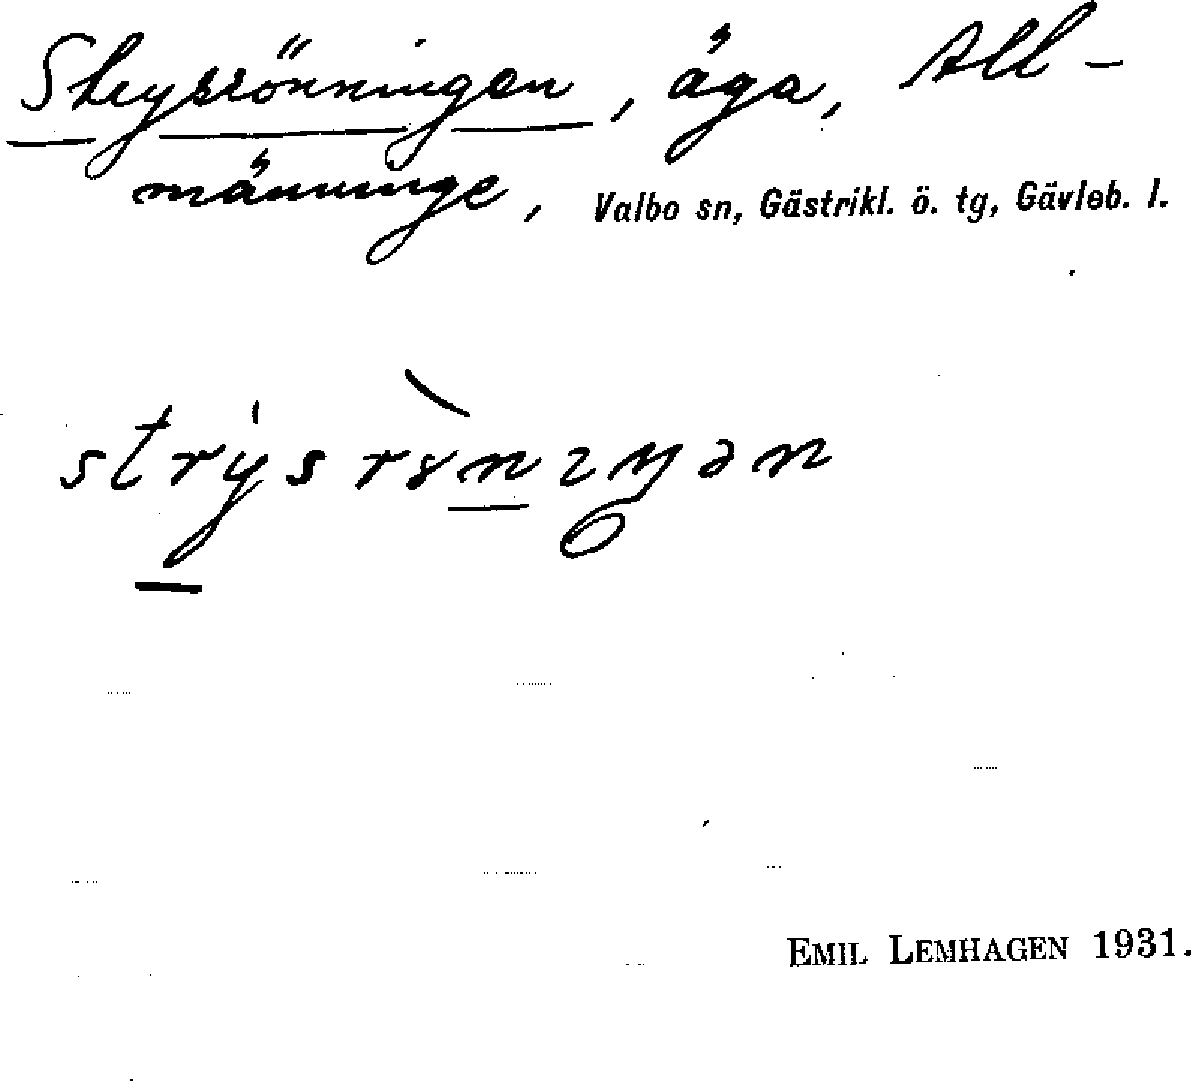 Strysrönningen, äga, All-
männinge, Valbo sn, Gästrikl. ö. tg, Gävleb. l.
EMIL LEMHAGEN 1931.